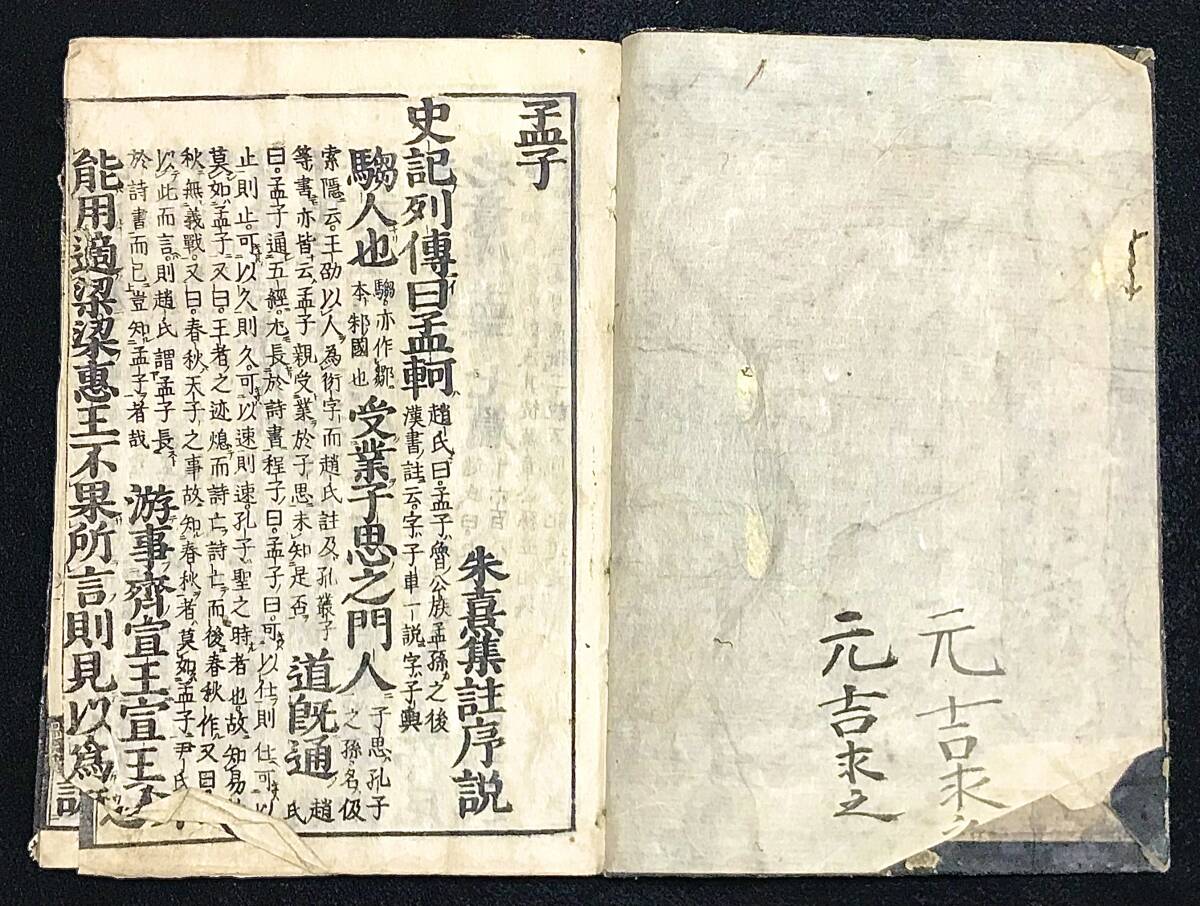 元吉求
元吉求之
孟子
朱熹集註序説
史記列傳曰孟軻
趙氏曰。孟子魯公族孟孫之後
漢書註云。字子車一説字子輿
騶人也
騶亦作鄒
本邾國也
受業子思之門人
子思孔子
之孫名伋
索隱云。王劭以人為衍字而趙氏註及孔叢子
等書亦皆云孟子親受業於子思未知是否
道既通
趙
氏
曰。孟子通五經。尤長於詩書程子曰。孟子曰。可以仕則仕可以
止則止。可以久則久。可以速則速。孔子聖之時者也故知易
莫如孟子又曰。王者之迹熄而詩亡詩亡而後春秋作又曰
秋無義戰。又曰。春秋天子之事故知春秋者莫如孟子尹氏
以此而言。則趙氏謂孟子長
於詩書而已豈知孟子者哉
游事齊宣王宣王不
能用適梁梁惠王不果所言則見以爲